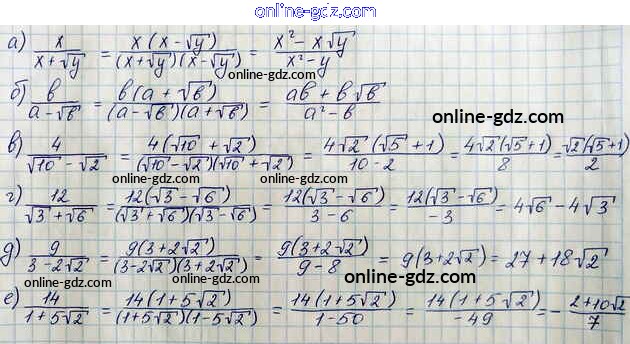 online-gdz.com
а) x/(x+√y) = x(x-√y)/((x+√y)(x-√y)) = (x²-x√y)/(x²-y)
online-gdz.com
б) b/(a-√b) = b(a+√b)/((a-√b)(a+√b)) = (ab+b√b)/(a²-b)
online-gdz.com
online-gdz.com
в) 4/(√10-√2) = 4(√10+√2)/((√10-√2)(√10+√2)) = 4√2(√5+1)/(10-2) = 4√2(√5+1)/8 = √2(√5+1)/2
online-gdz.com online-gdz.com
г) 12/(√3+√6) = 12(√3-√6)/((√3+√6)(√3-√6)) = 12(√3-√6)/(3-6) = 12(√3-√6)/(-3) = 4√6-4√3
online-gdz.com
д) 9/(3-2√2) = 9(3+2√2)/((3-2√2)(3+2√2)) = 9(3+2√2)/(9-8) = 9(3+2√2) = 27+18√2
online-gdz.com
online-gdz.com
е) 14/(1+5√2) = 14(1+5√2)/((1+5√2)(1-5√2)) = 14(1+5√2)/(1-50) = 14(1+5√2)/(-49) = -(2+10√2)/7
online-gdz.com